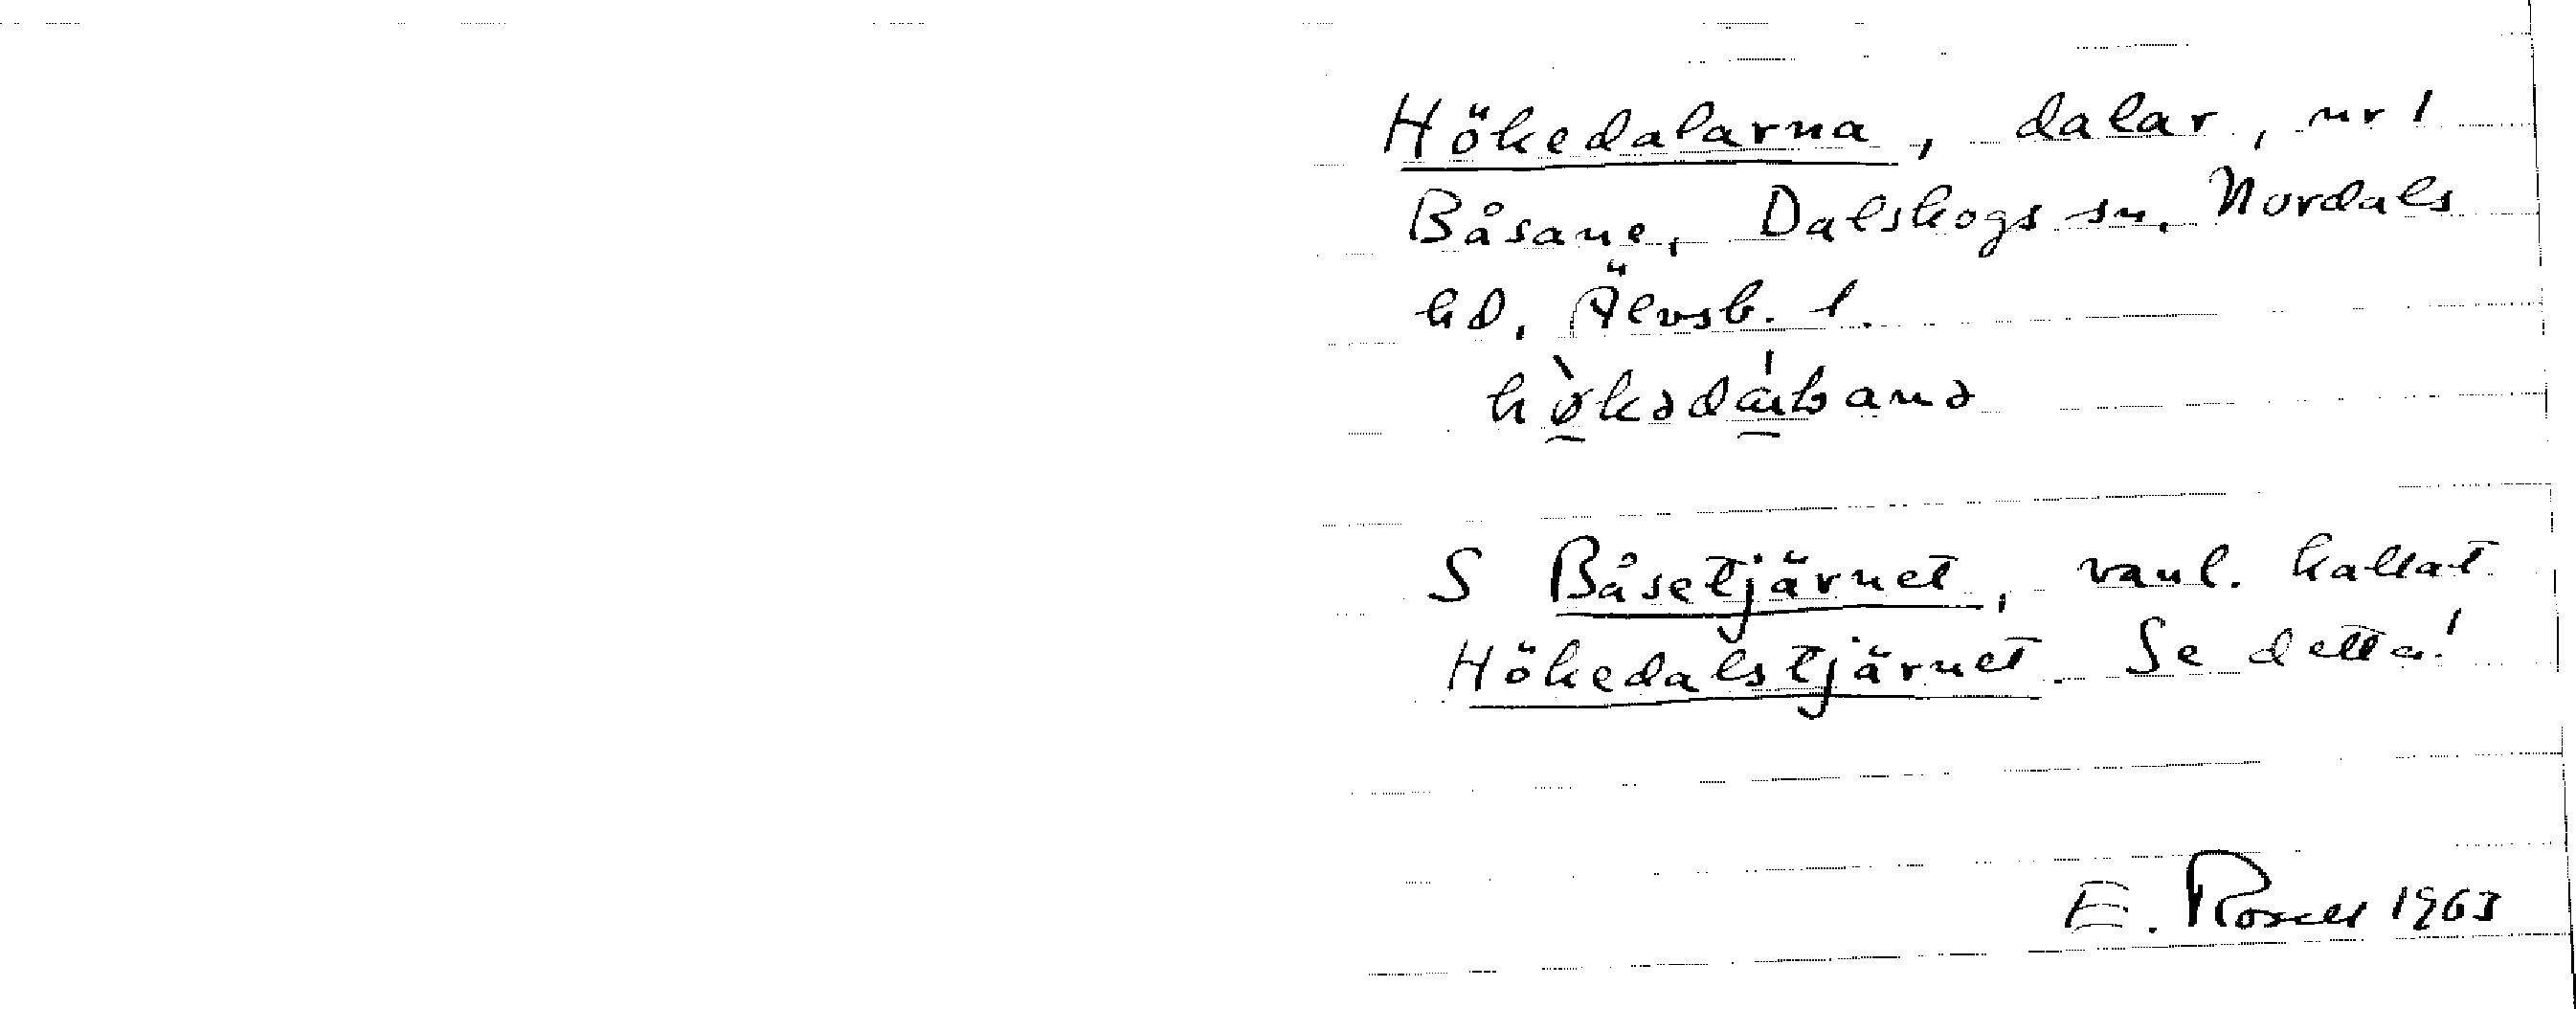 Hökedalarna, dalar, nr 1
Båsane, Dalskogs sn. Nordals
hd, Älvsb. l.
S Båsetjärnet, vanl. kallat
Hökedalstjärnet. Se detta!
E. Rosell 1963